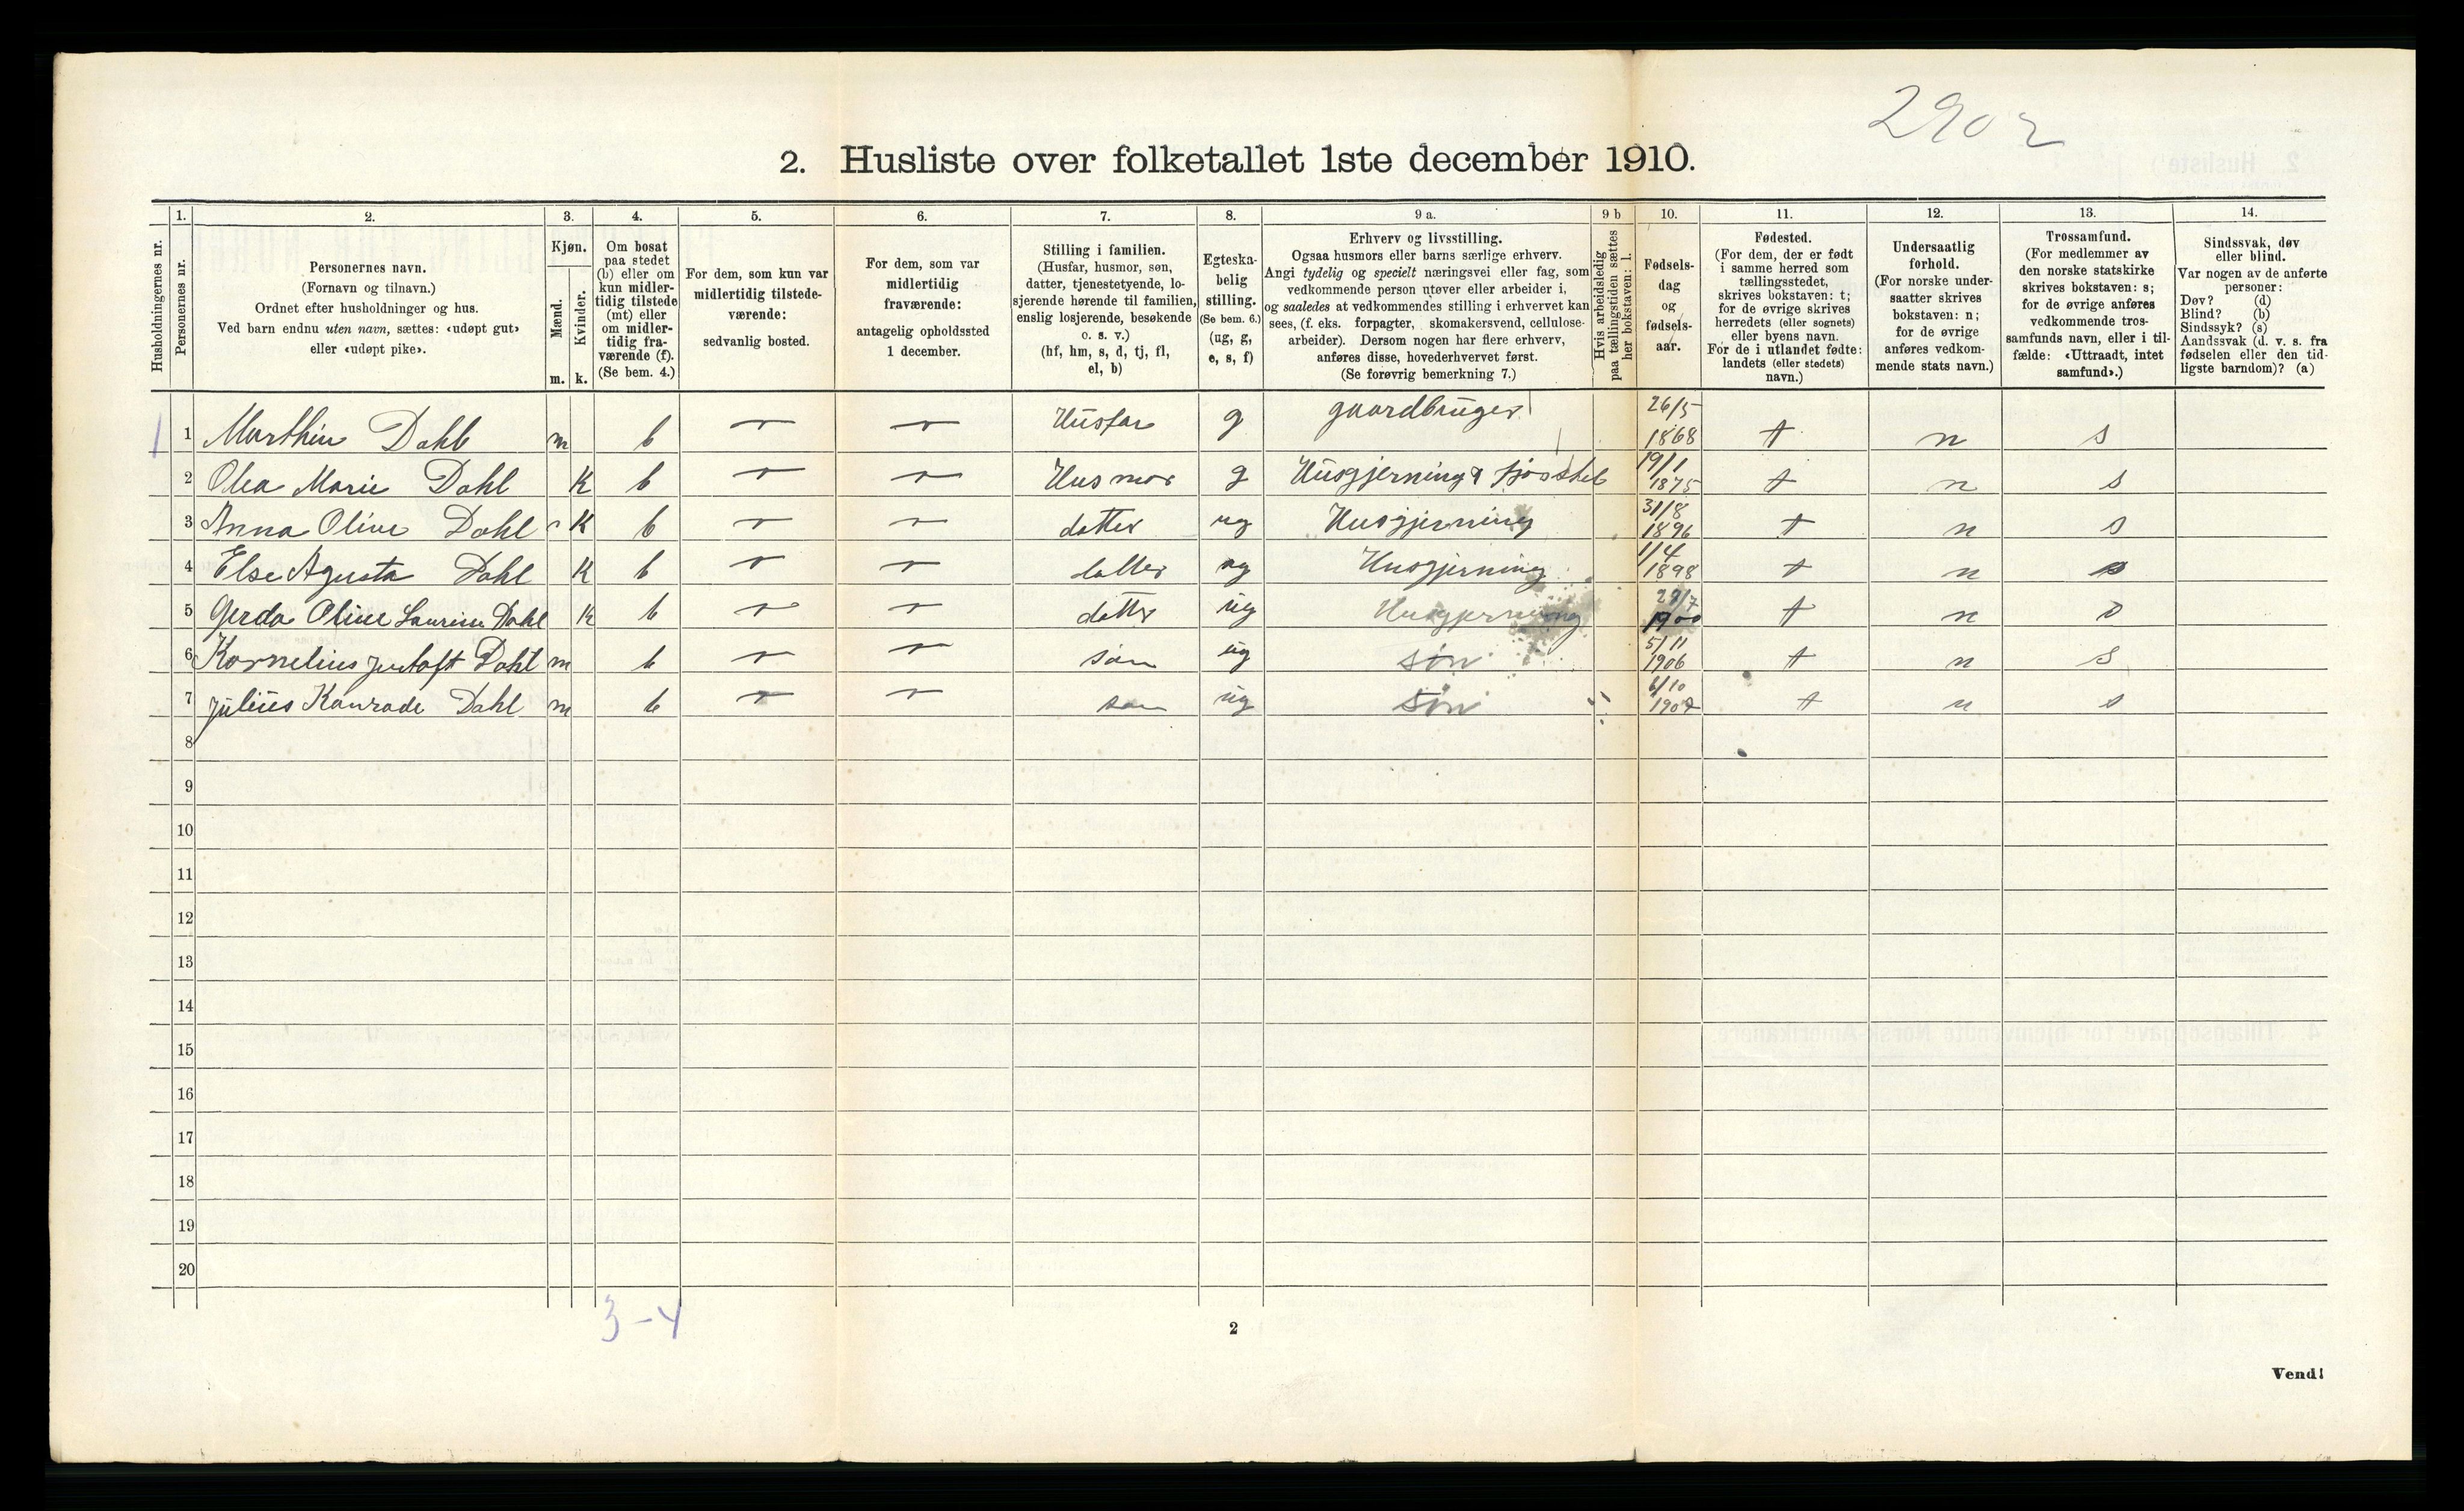 2902
2. Husliste over folketallet 1ste december 1910.
Husholdningernes nr.
1.
Personernes nr.
2.
Personernes navn.
(Fornavn og tilnavn.)
Ordnet efter husholdninger og hus.
Ved barn endnu uten navn, sættes: «udøpt gut»
eller «udøpt pike».
3.
Kjøn.
Mænd.
Kvinder.
m. k.
4.
Om bosat
paa stedet
(b) eller om
kun midler-
tidig tilstede
(mt) eller
om midler-
tidig fra-
værende (f).
(Se bem. 4.)
5.
For dem, som kun var
midlertidig tilstede-
værende:
sedvanlig bosted.
6.
For dem, som var
midlertidig
fraværende:
antagelig opholdssted
1 december.
7.
Stilling i familien.
(Husfar, husmor, søn,
datter, tjenestetyende, lo-
sjerende hørende til familien,
enslig losjerende, besøkende
o. s. v.)
(hf, hm, s, d, tj, fl,
el, b)
8.
Egteska-
belig
stilling.
(Se bem. 6.)
(ug, g,
e, s, f)
9 a.
Erhverv og livsstilling.
Ogsaa husmors eller barns særlige erhverv.
Angi tydelig og specielt næringsvei eller fag, som
vedkommende person utøver eller arbeider i,
og saaledes at vedkommendes stilling i erhvervet kan
sees, (f. eks. forpagter, skomakersvend, cellulose-
arbeider). Dersom nogen har flere erhverv,
anføres disse, hovederhvervet først.
(Se forøvrig bemerkning 7.)
9 b
Hvis arbeidsledig
paa tællingstiden sættes
her bokstaven: l.
10.
Fødsels-
dag
og
fødsels-
aar.
11.
Fødested.
(For dem, der er født
i samme herred som
tællingsstedet,
skrives bokstaven: t;
for de øvrige skrives
herredets (eller sognets)
eller byens navn.
For de i utlandet fødte:
landets (eller stedets)
navn.)
12.
Undersaatlig
forhold.
(For norske under-
saatter skrives
bokstaven: n;
for de øvrige
anføres vedkom-
mende stats navn.)
13.
Trossamfund.
(For medlemmer av
den norske statskirke
skrives bokstaven: s;
for de øvrige anføres
vedkommende tros-
samfunds navn, eller i til-
fælde: «Uttraadt, intet
samfund».)
14.
Sindssvak, døv
eller blind.
Var nogen av de anførte
personer:
Døv? (d)
Blind? (b)
Sindssyk? (s)
Aandssvak (d. v. s. fra
fødselen eller den tid-
ligste barndom)? (a)
1 1 Marthin Dahl m b Husfar g gaardbruger 26/5 1868 t n s
2 Olea Marie Dahl K b Husmor g Husgjerning & fjøsstel 19/1 1875 t n s
3 Anna Oline Dahl K b datter ug Husgjerning 31/8 1896 t n s
4 Else Agusta Dahl K b datter ug Husgjerning 1/4 1898 t n s
5 Gerda Oline Laurine Dahl K b datter ug Husgjerning 29/7 1900 t n s
6 Kornelius Dahl m b søn ug søn 5/11 1906 t n s
7 Julius Konrade Dahl m b søn ug søn 6/10 t n s
8
9
10
11
12
13
14
15
16
17
18
19
20
3-4
2
Vend!